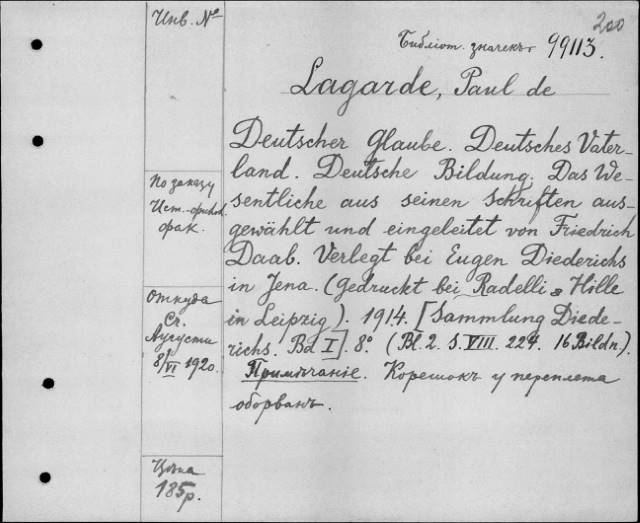 200
Инв. №
Библіот. значекъ 99113.
Lagarde, Paul de
Deutscher Glaube. Deutsches Vater-
land. Deutsche Bildung. Das We-
sentliche aus seinen Schriften aus-
gewählt und eingeleitet von Friedrich
Daab. Verlegt bei Eugen Diederichs
in Jena. (Gedruckt bei Radelli & Hille
in Leipzig). 1914. [Sammlung Diede-
richs. Bd I]. 8°. (Bl. 2. S. VIII. 224. 16 Bildn).
Примѣчаніе. Корешокъ у переплета
оборванъ.
По заказу
Ист.-филол.
фак.
Откуда
Ст.
Августы
8/VI 1920.
Цѣна
185 р.